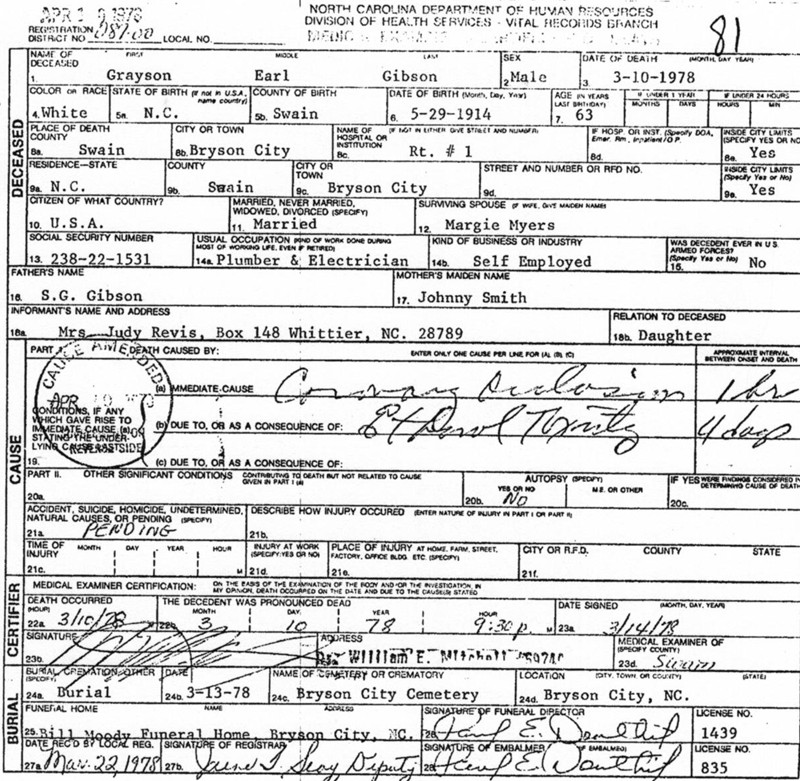 APR 19 1978
NORTH CAROLINA DEPARTMENT OF HUMAN RESOURCES
DIVISION OF HEALTH SERVICES - VITAL RECORDS BRANCH
REGISTRATION DISTRICT NO. LOCAL NO.
81
DECEASED
NAME OF DECEASED FIRST MIDDLE LAST SEX DATE OF DEATH (MONTH, DAY, YEAR)
1. Grayson Earl Gibson 2. Male 3. 3-10-1978
COLOR OR RACE STATE OF BIRTH (If not in U.S.A. name country) COUNTY OF BIRTH DATE OF BIRTH (Month, Day, Year) AGE (IN YEARS LAST BIRTHDAY) IF UNDER 1 YEAR MONTHS DAYS IF UNDER 24 HOURS HOURS MIN
4. White 5a. N.C. 5b. Swain 6. 5-29-1914 7. 63
PLACE OF DEATH COUNTY CITY OR TOWN NAME OF HOSPITAL OR INSTITUTION (IF NOT IN EITHER GIVE STREET AND NUMBER) IF HOSP. OR INST. (Specify DOA, Emer. Rm., Inpatient/O P. INSIDE CITY LIMITS (SPECIFY YES OR NO)
8a. Swain 8b. Bryson City 8c. Rt. # 1 8d. 8e. Yes
RESIDENCE-STATE COUNTY CITY OR TOWN STREET AND NUMBER OR RFD NO. INSIDE CITY LIMITS (Specify Yes or No)
9a. N.C. 9b. Swain 9c. Bryson City 9d. 9e. Yes
CITIZEN OF WHAT COUNTRY? MARRIED, NEVER MARRIED, WIDOWED, DIVORCED (SPECIFY) SURVIVING SPOUSE (IF WIFE, GIVE MAIDEN NAME)
10. U.S.A. 11. Married 12. Margie Myers
SOCIAL SECURITY NUMBER USUAL OCCUPATION (KIND OF WORK DONE DURING MOST OF WORKING LIFE, EVEN IF RETIRED) KIND OF BUSINESS OR INDUSTRY WAS DECEDENT EVER IN U.S. ARMED FORCES? (Specify Yes or No)
13. 238-22-1531 14a. Plumber & Electrician 14b. Self Employed 15. No
FATHER'S NAME MOTHER'S MAIDEN NAME
16. S.G. Gibson 17. Johnny Smith
INFORMANT'S NAME AND ADDRESS RELATION TO DECEASED
18a. Mrs. Judy Revis, Box 148 Whittier, NC. 28789 18b. Daughter
CAUSE
PART DEATH CAUSED BY: ENTER ONLY ONE CAUSE PER LINE FOR (A), (B), (C) APPROXIMATE INTERVAL BETWEEN ONSET AND DEATH
CAUSE AMENDED
APR 19 1978
(a) IMMEDIATE CAUSE Coronary Occlusion 1 hr
CONDITIONS, IF ANY WHICH GAVE RISE TO IMMEDIATE CAUSE (a) STATING THE UNDERLYING CAUSE LAST
(b) DUE TO, OR AS A CONSEQUENCE OF: 4 days
19. (c) DUE TO, OR AS A CONSEQUENCE OF:
PART II. OTHER SIGNIFICANT CONDITIONS CONTRIBUTING TO DEATH BUT NOT RELATED TO CAUSE GIVEN IN PART I (A) AUTOPSY (SPECIFY) YES OR NO M.E. OR OTHER IF YES WERE FINDINGS CONSIDERED IN DETERMINING CAUSE OF DEATH
20a. 20b. No 20c.
ACCIDENT, SUICIDE, HOMICIDE, UNDETERMINED, NATURAL CAUSES, OR PENDING (SPECIFY) DESCRIBE HOW INJURY OCCURED (ENTER NATURE OF INJURY IN PART I OR PART II)
21a. PENDING 21b.
TIME OF INJURY MONTH DAY YEAR HOUR INJURY AT WORK (SPECIFY YES OR NO) PLACE OF INJURY AT HOME, FARM, STREET, FACTORY, OFFICE BLDG. ETC. (SPECIFY) CITY OR R.F.D. COUNTY STATE
21c. M 21d. 21e. 21f.
CERTIFIER
MEDICAL EXAMINER CERTIFICATION: ON THE BASIS OF THE EXAMINATION OF THE BODY AND/OR THE INVESTIGATION, IN MY OPINION, DEATH OCCURRED ON THE DATE AND DUE TO THE CAUSE(S) STATED
DEATH OCCURRED (HOUR) THE DECEDENT WAS PRONOUNCED DEAD MONTH DAY YEAR HOUR DATE SIGNED (MONTH, DAY, YEAR)
22a. 3/10/78 22b. 3 10 78 9:30 p. M 23a. 3/14/78
SIGNATURE ADDRESS MEDICAL EXAMINER OF (SPECIFY COUNTY)
23b. William E. Mitchell 23d. Swain
BURIAL
BURIAL, CREMATION, OTHER (SPECIFY) DATE NAME OF CEMETERY OR CREMATORY LOCATION (CITY, TOWN, OR COUNTY) (STATE)
24a. Burial 24b. 3-13-78 24c. Bryson City Cemetery 24d. Bryson City, NC.
FUNERAL HOME NAME ADDRESS SIGNATURE OF FUNERAL DIRECTOR LICENSE NO.
25. Bill Moody Funeral Home, Bryson City, NC. 1439
DATE REC'D BY LOCAL REG. SIGNATURE OF REGISTRAR SIGNATURE OF EMBALMER (IF EMBALMED) LICENSE NO.
27a. Mar. 22, 1978 27b. Deputy 835